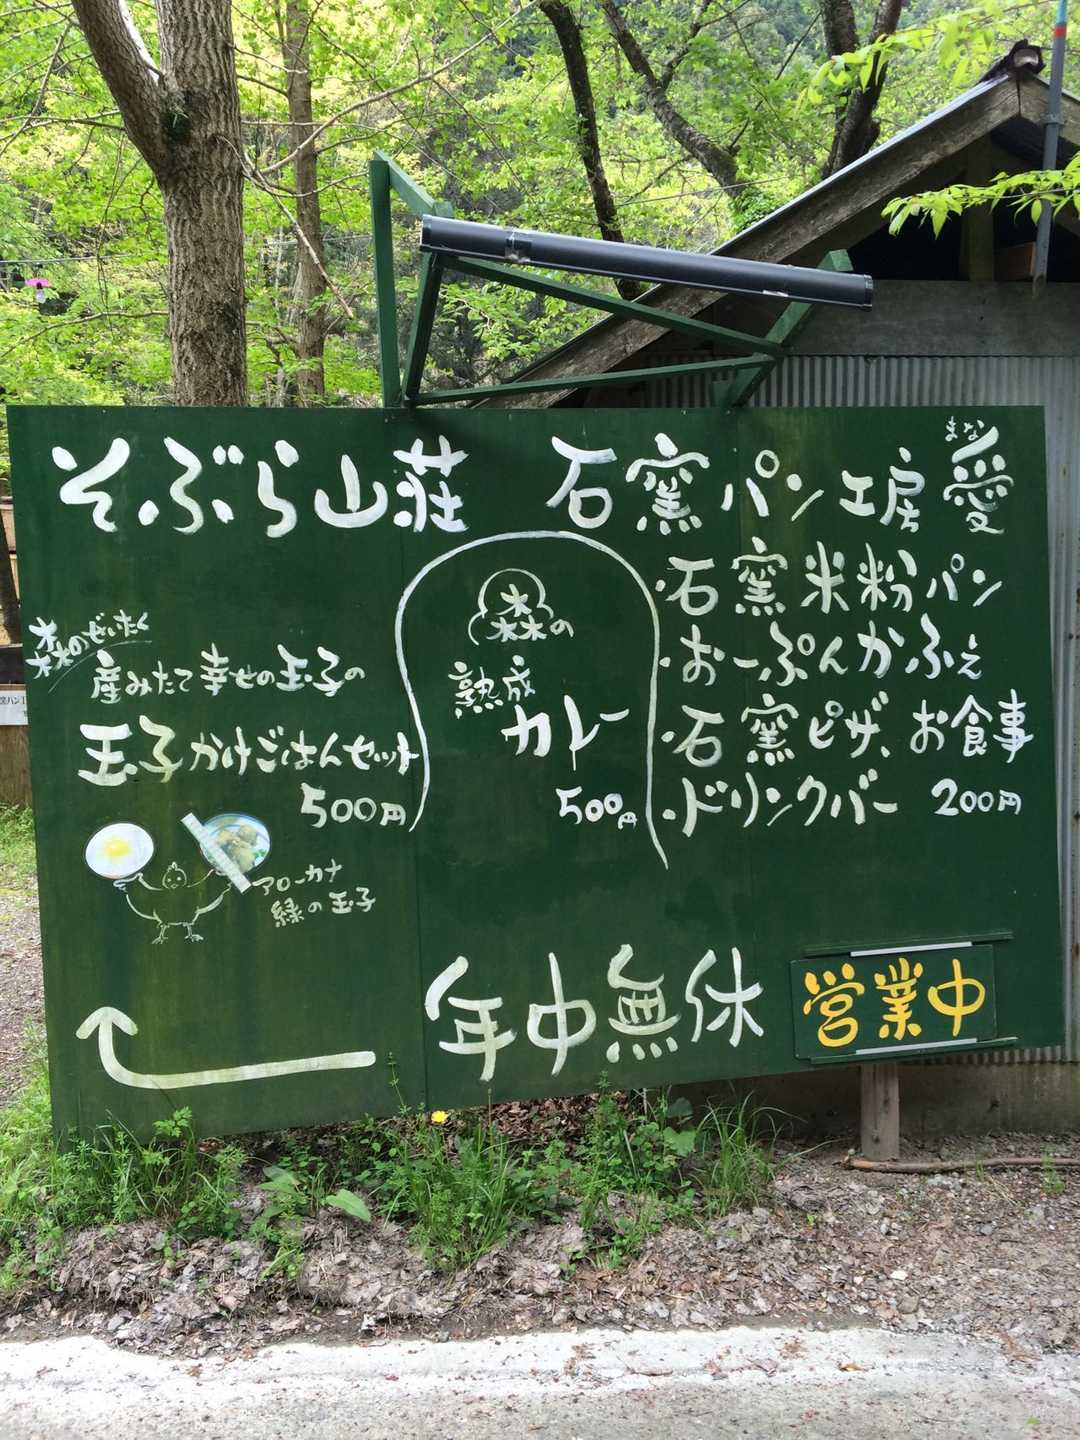 そぶら山荘 石窯パン工房 愛
まな
森のぜいたく
産みたて幸せの玉子の
玉子かけごはんセット
500円
アローカナ
緑の玉子
森の
熟成
カレー
500円
・石窯米粉パン
・おーぷんかふぇ
・石窯ピザ、お食事
・ドリンクバー 200円
年中無休
営業中